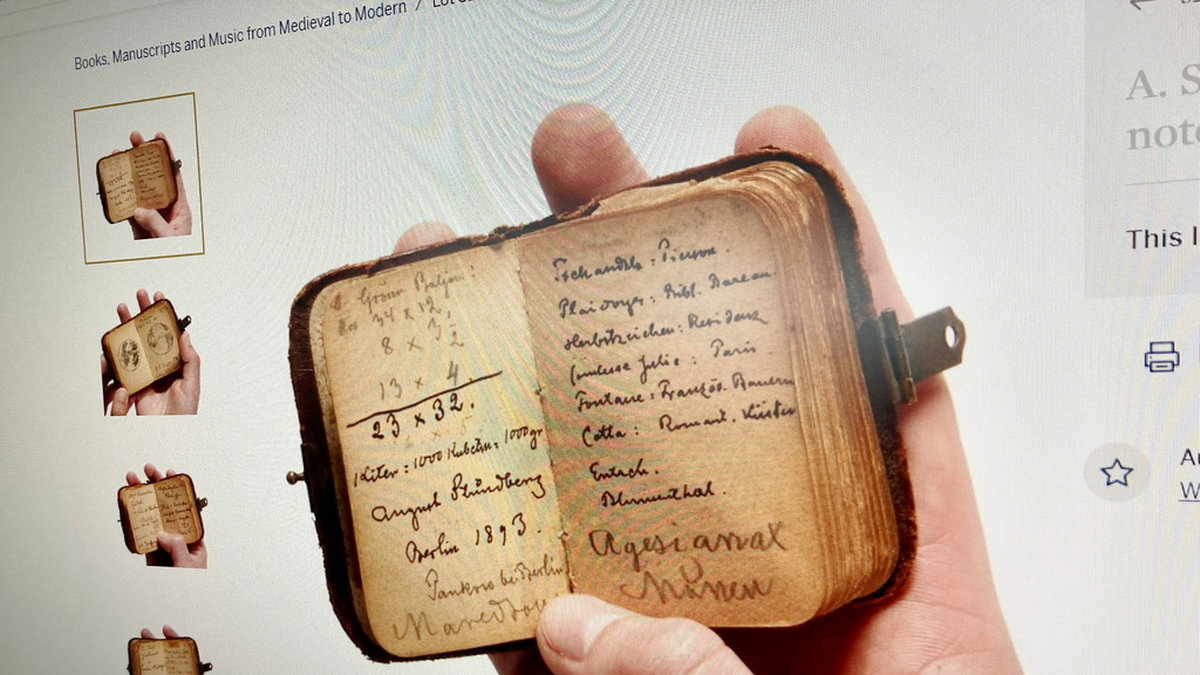 Books, Manuscripts and Music from Medieval to Modern /
A. S
note
This l
34 x 12.
8 x 32
13 x 4.
23 x 32.
1 Liter = 1000 Kubctm = 1000 gr
August Strindberg
Berlin 1893.
Pankow bei Berlin
Tschandala: Pierson.
Plaidoyer: Bibl. Bureau.
Herbstzeichen: Residenz
Comtesse Julie: Paris.
Fontane: Französ. Bauern
Cotta: Romant. Küster
Entsch.
Blumenthal.
Agesianax
W